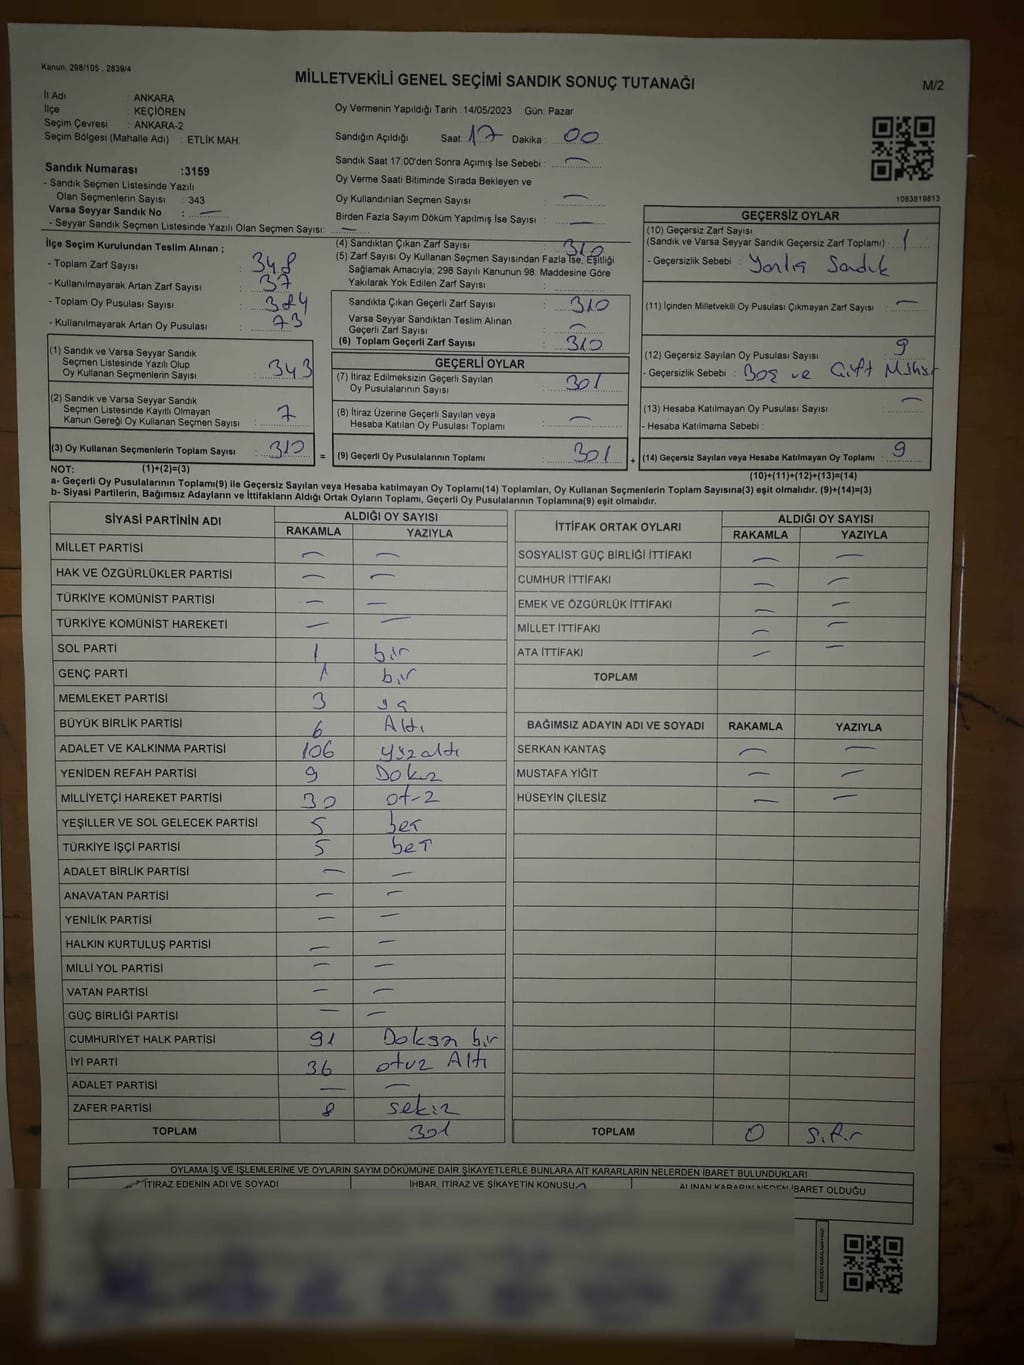 Kanun. 298/105 . 2839/4
MİLLETVEKİLİ GENEL SEÇİMİ SANDIK SONUÇ TUTANAĞI
M/2
İl Adı : ANKARA
İlçe : KEÇİÖREN
Seçim Çevresi : ANKARA-2
Seçim Bölgesi (Mahalle Adı) : ETLİK MAH.
Oy Vermenin Yapıldığı Tarih :14/05/2023 Gün: Pazar
Sandığın Açıldığı Saat: 17 Dakika : 00
Sandık Saat 17:00'den Sonra Açımış İse Sebebi : —
Oy Verme Saati Bitiminde Sırada Bekleyen ve
Oy Kullandırılan Seçmen Sayısı : —
Birden Fazla Sayım Döküm Yapılmış İse Sayısı : —
1083819813
Sandık Numarası :3159
- Sandık Seçmen Listesinde Yazılı
Olan Seçmenlerin Sayısı : 343
Varsa Seyyar Sandık No : —
- Seyyar Sandık Seçmen Listesinde Yazılı Olan Seçmen Sayısı: —
İlçe Seçim Kurulundan Teslim Alınan ;
- Toplam Zarf Sayısı : 348
- Kullanılmayarak Artan Zarf Sayısı : 37
- Toplam Oy Pusulası Sayısı : 384
- Kullanılmayarak Artan Oy Pusulası : 73
(1) Sandık ve Varsa Seyyar Sandık
Seçmen Listesinde Yazılı Olup
Oy Kullanan Seçmenlerin Sayısı : 343
(2) Sandık ve Varsa Seyyar Sandık
Seçmen Listesinde Kayıtlı Olmayan
Kanun Gereği Oy Kullanan Seçmen Sayısı : 7
(3) Oy Kullanan Seçmenlerin Toplam Sayısı : 310
(4) Sandıktan Çıkan Zarf Sayısı : 310
(5) Zarf Sayısı Oy Kullanan Seçmen Sayısından Fazla İse, Eşitliği
Sağlamak Amacıyla, 298 Sayılı Kanunun 98. Maddesine Göre
Yakılarak Yok Edilen Zarf Sayısı :
Sandıkta Çıkan Geçerli Zarf Sayısı : 310
Varsa Seyyar Sandıktan Teslim Alınan
Geçerli Zarf Sayısı : —
(6) Toplam Geçerli Zarf Sayısı : 310
GEÇERLİ OYLAR
(7) İtiraz Edilmeksizin Geçerli Sayılan
Oy Pusulalarının Sayısı : 301
(8) İtiraz Üzerine Geçerli Sayılan veya
Hesaba Katılan Oy Pusulası Toplamı : —
= (9) Geçerli Oy Pusulalarının Toplamı : 301
GEÇERSİZ OYLAR
(10) Geçersiz Zarf Sayısı
(Sandık ve Varsa Seyyar Sandık Geçersiz Zarf Toplamı) : 1
- Geçersizlik Sebebi : Yanlış Sandık
(11) İçinden Milletvekili Oy Pusulası Çıkmayan Zarf Sayısı : —
(12) Geçersiz Sayılan Oy Pusulası Sayısı : 9
- Geçersizlik Sebebi : Boş ve Çift Mühür
(13) Hesaba Katılmayan Oy Pusulası Sayısı : —
- Hesaba Katılmama Sebebi :
+ (14) Geçersiz Sayılan veya Hesaba Katılmayan Oy Toplamı : 9
NOT: (1)+(2)=(3)
(10)+(11)+(12)+(13)=(14)
a- Geçerli Oy Pusulalarının Toplamı(9) ile Geçersiz Sayılan veya Hesaba Katılmayan Oy Toplamı(14) Toplamları, Oy Kullanan Seçmenlerin Toplam Sayısına(3) eşit olmalıdır. (9)+(14)=(3)
b- Siyasi Partilerin, Bağımsız Adayların ve İttifakların Aldığı Ortak Oyların Toplamı, Geçerli Oy Pusulalarının Toplamına(9) eşit olmalıdır.
SİYASİ PARTİNİN ADI ALDIĞI OY SAYISI
RAKAMLA YAZIYLA
MİLLET PARTİSİ — —
HAK VE ÖZGÜRLÜKLER PARTİSİ — —
TÜRKİYE KOMÜNİST PARTİSİ — —
TÜRKİYE KOMÜNİST HAREKETİ — —
SOL PARTİ 1 bir
GENÇ PARTİ 1 bir
MEMLEKET PARTİSİ 3
BÜYÜK BİRLİK PARTİSİ 6 Altı
ADALET VE KALKINMA PARTİSİ 106 yüzaltı
YENİDEN REFAH PARTİSİ 9 Dokuz
MİLLİYETÇİ HAREKET PARTİSİ 30 otuz
YEŞİLLER VE SOL GELECEK PARTİSİ 5 beş
TÜRKİYE İŞÇİ PARTİSİ 5 beş
ADALET BİRLİK PARTİSİ — —
ANAVATAN PARTİSİ — —
YENİLİK PARTİSİ — —
HALKIN KURTULUŞ PARTİSİ — —
MİLLİ YOL PARTİSİ — —
VATAN PARTİSİ — —
GÜÇ BİRLİĞİ PARTİSİ — —
CUMHURİYET HALK PARTİSİ 91 Doksan bir
İYİ PARTİ 36 otuz Altı
ADALET PARTİSİ — —
ZAFER PARTİSİ 8 sekiz
TOPLAM 301
İTTİFAK ORTAK OYLARI ALDIĞI OY SAYISI
RAKAMLA YAZIYLA
SOSYALİST GÜÇ BİRLİĞİ İTTİFAKI — —
CUMHUR İTTİFAKI — —
EMEK VE ÖZGÜRLÜK İTTİFAKI — —
MİLLET İTTİFAKI — —
ATA İTTİFAKI — —
TOPLAM
BAĞIMSIZ ADAYIN ADI VE SOYADI RAKAMLA YAZIYLA
SERKAN KANTAŞ — —
MUSTAFA YİĞİT — —
HÜSEYİN ÇİLESİZ — —
TOPLAM 0 Sıfır
OYLAMA İŞ VE İŞLEMLERİNE VE OYLARIN SAYIM DÖKÜMÜNE DAİR ŞİKAYETLERLE BUNLARA AİT KARARLARIN NELERDEN İBARET BULUNDUKLARI
İTİRAZ EDENİN ADI VE SOYADI İHBAR, İTİRAZ VE ŞİKAYETİN KONUSU ALINAN KARARIN NEDEN İBARET OLDUĞU